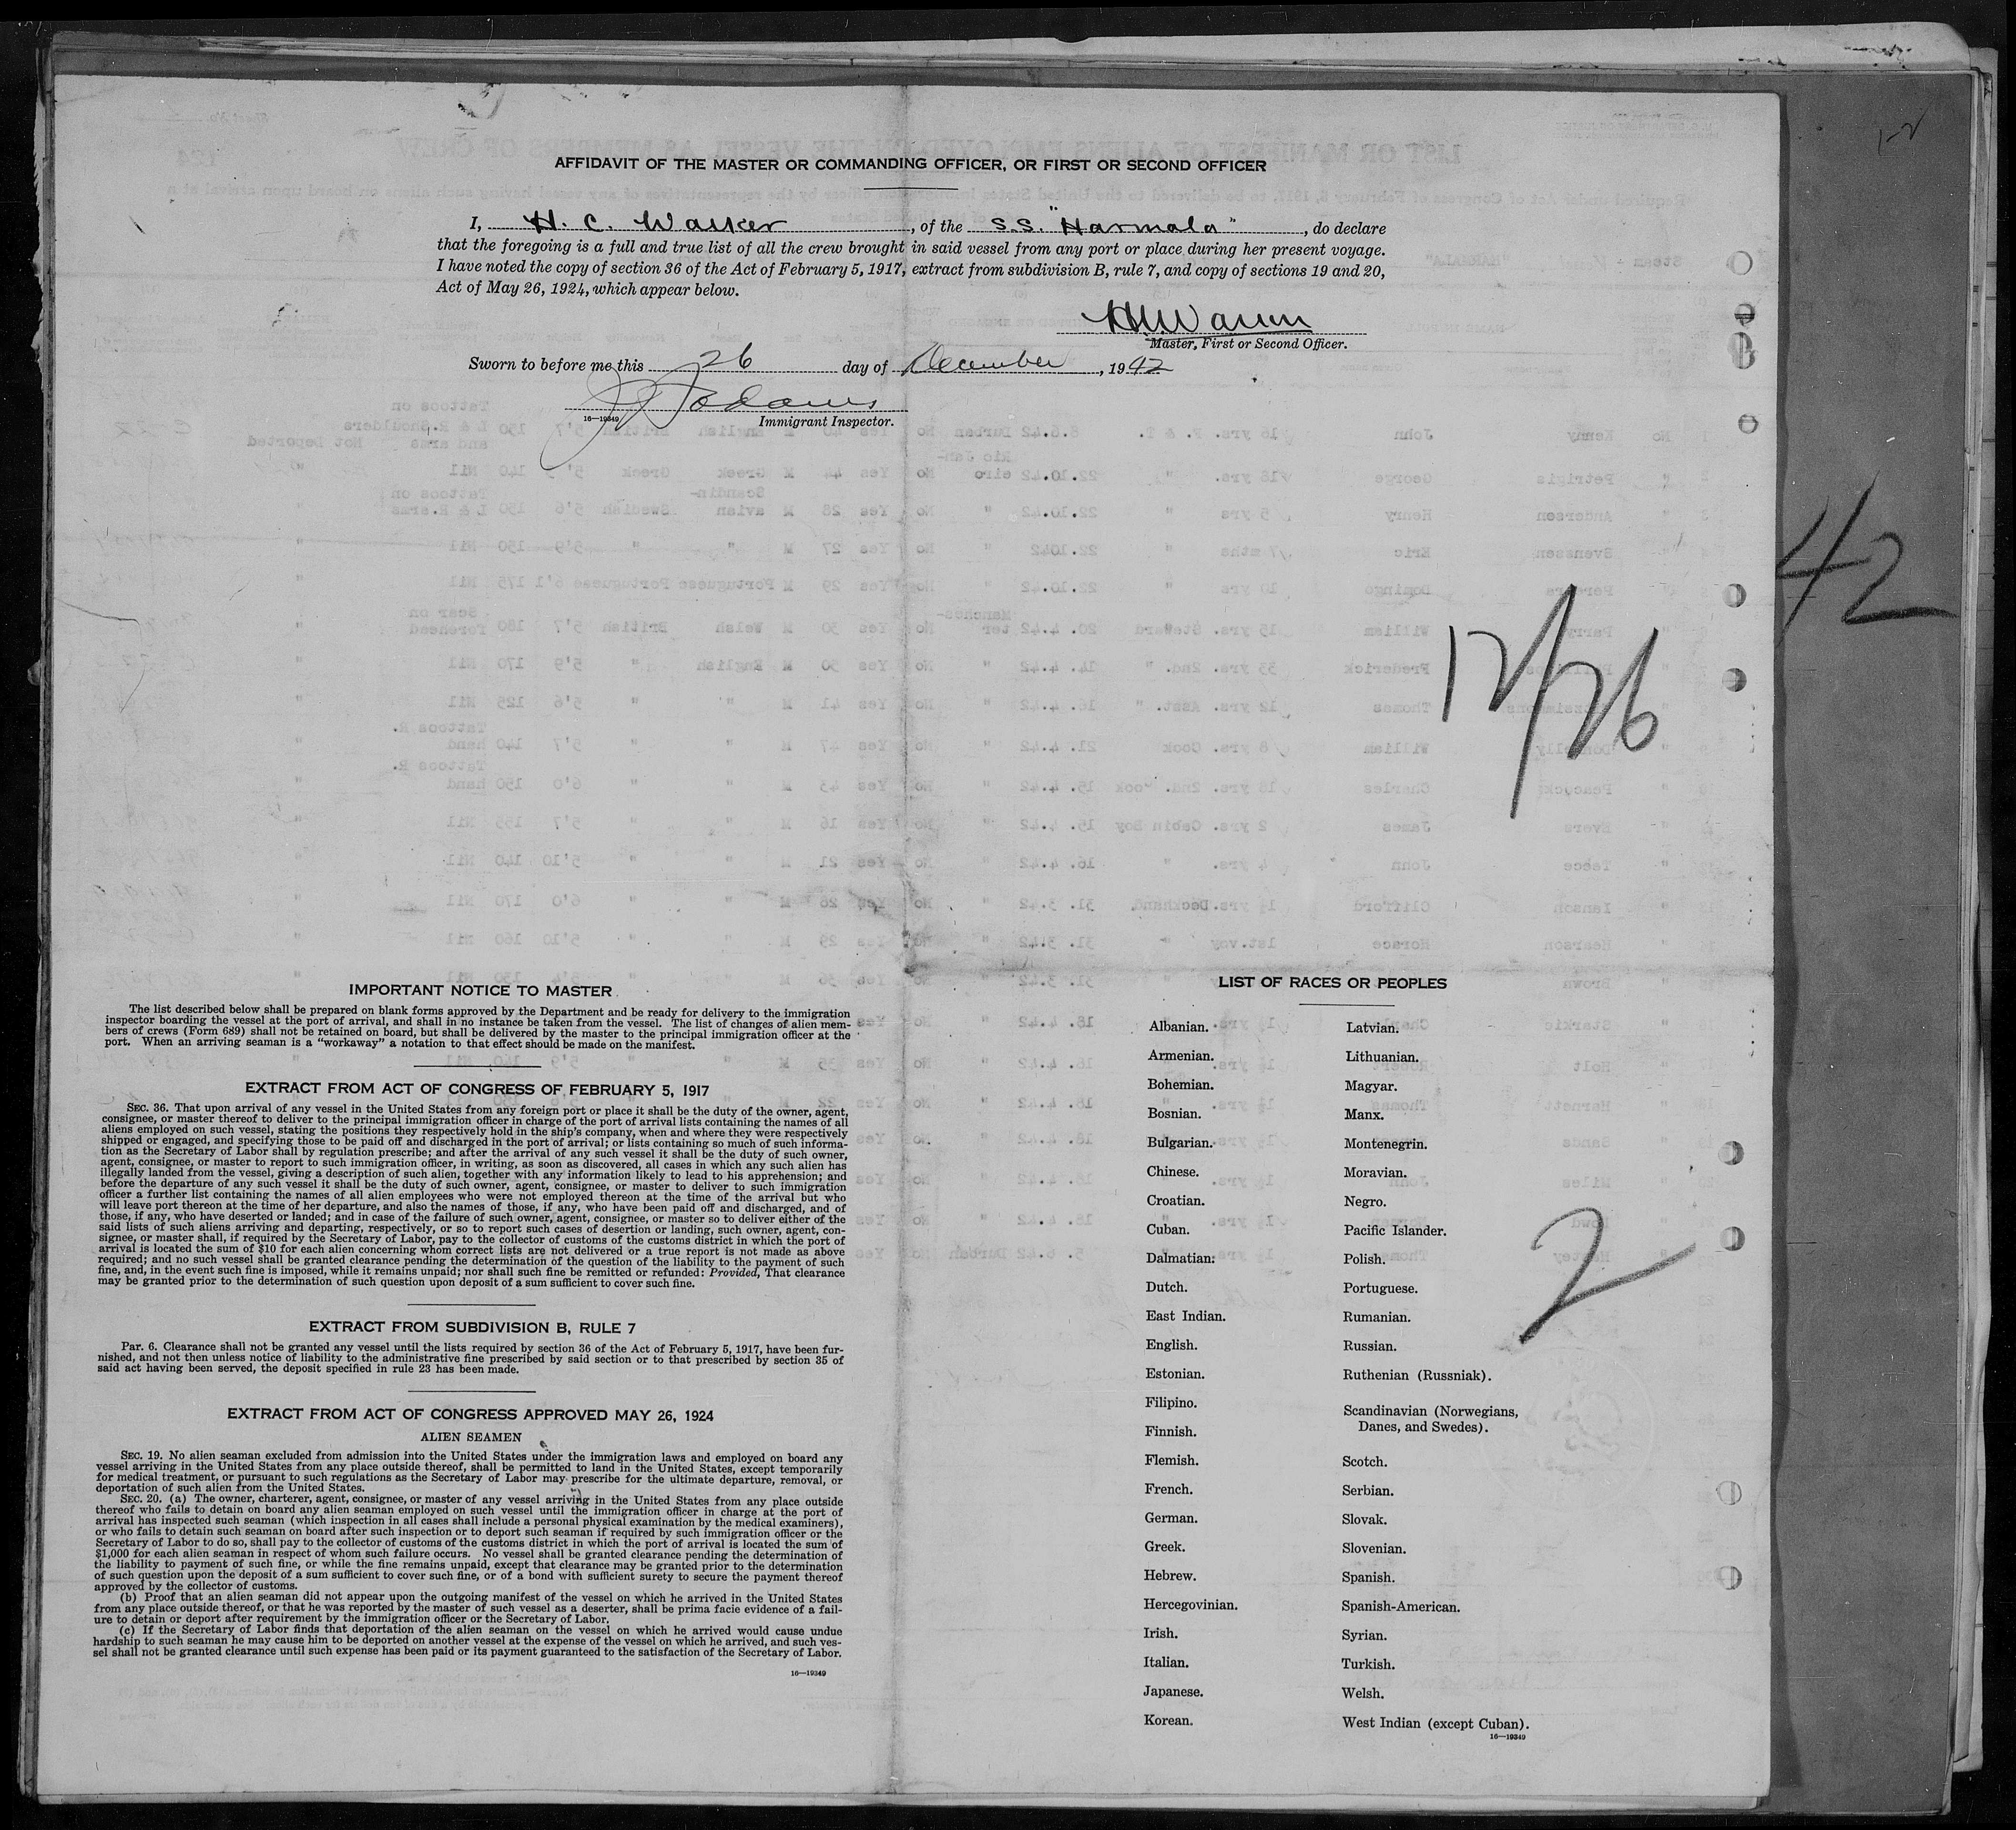 AFFIDAVIT OF THE MASTER OR COMMANDING OFFICER, OR FIRST OR SECOND OFFICER
I, H. C. Walker, of the S.S. "Harmala", do declare
that the foregoing is a full and true list of all the crew brought in said vessel from any port or place during her present voyage.
I have noted the copy of section 36 of the Act of February 5, 1917, extract from subdivision B, rule 7, and copy of sections 19 and 20,
Act of May 26, 1924, which appear below.
Master, First or Second Officer.
Sworn to before me this 26 day of December, 1942
16—19349
Immigrant Inspector.
42
12/26
2
IMPORTANT NOTICE TO MASTER
The list described below shall be prepared on blank forms approved by the Department and be ready for delivery to the immigration
inspector boarding the vessel at the port of arrival, and shall in no instance be taken from the vessel. The list of changes of alien mem-
bers of crews (Form 689) shall not be retained on board, but shall be delivered by the master to the principal immigration officer at the
port. When an arriving seaman is a "workaway" a notation to that effect should be made on the manifest.
EXTRACT FROM ACT OF CONGRESS OF FEBRUARY 5, 1917
SEC. 36. That upon arrival of any vessel in the United States from any foreign port or place it shall be the duty of the owner, agent,
consignee, or master thereof to deliver to the principal immigration officer in charge of the port of arrival lists containing the names of all
aliens employed on such vessel, stating the positions they respectively hold in the ship's company, when and where they were respectively
shipped or engaged, and specifying those to be paid off and discharged in the port of arrival; or lists containing so much of such informa-
tion as the Secretary of Labor shall by regulation prescribe; and after the arrival of any such vessel it shall be the duty of such owner,
agent, consignee, or master to report to such immigration officer, in writing, as soon as discovered, all cases in which any such alien has
illegally landed from the vessel, giving a description of such alien, together with any information likely to lead to his apprehension; and
before the departure of any such vessel it shall be the duty of such owner, agent, consignee, or master to deliver to such immigration
officer a further list containing the names of all alien employees who were not employed thereon at the time of the arrival but who
will leave port thereon at the time of her departure, and also the names of those, if any, who have been paid off and discharged, and of
those, if any, who have deserted or landed; and in case of the failure of such owner, agent, consignee, or master so to deliver either of the
said lists of such aliens arriving and departing, respectively, or so to report such cases of desertion or landing, such owner, agent, con-
signee, or master shall, if required by the Secretary of Labor, pay to the collector of customs of the customs district in which the port of
arrival is located the sum of $10 for each alien concerning whom correct lists are not delivered or a true report is not made as above
required; and no such vessel shall be granted clearance pending the determination of the question of the liability to the payment of such
fine, and, in the event such fine is imposed, while it remains unpaid; nor shall such fine be remitted or refunded: Provided, That clearance
may be granted prior to the determination of such question upon deposit of a sum sufficient to cover such fine.
EXTRACT FROM SUBDIVISION B, RULE 7
Par. 6. Clearance shall not be granted any vessel until the lists required by section 36 of the Act of February 5, 1917, have been fur-
nished, and not then unless notice of liability to the administrative fine prescribed by said section or to that prescribed by section 35 of
said act having been served, the deposit specified in rule 23 has been made.
EXTRACT FROM ACT OF CONGRESS APPROVED MAY 26, 1924
ALIEN SEAMEN
SEC. 19. No alien seaman excluded from admission into the United States under the immigration laws and employed on board any
vessel arriving in the United States from any place outside thereof, shall be permitted to land in the United States, except temporarily
for medical treatment, or pursuant to such regulations as the Secretary of Labor may prescribe for the ultimate departure, removal, or
deportation of such alien from the United States.
SEC. 20. (a) The owner, charterer, agent, consignee, or master of any vessel arriving in the United States from any place outside
thereof who fails to detain on board any alien seaman employed on such vessel until the immigration officer in charge at the port of
arrival has inspected such seaman (which inspection in all cases shall include a personal physical examination by the medical examiners),
or who fails to detain such seaman on board after such inspection or to deport such seaman if required by such immigration officer or the
Secretary of Labor to do so, shall pay to the collector of customs of the customs district in which the port of arrival is located the sum of
$1,000 for each alien seaman in respect of whom such failure occurs. No vessel shall be granted clearance pending the determination of
the liability to payment of such fine, or while the fine remains unpaid, except that clearance may be granted prior to the determination
of such question upon the deposit of a sum sufficient to cover such fine, or of a bond with sufficient surety to secure the payment thereof
approved by the collector of customs.
(b) Proof that an alien seaman did not appear upon the outgoing manifest of the vessel on which he arrived in the United States
from any place outside thereof, or that he was reported by the master of such vessel as a deserter, shall be prima facie evidence of a fail-
ure to detain or deport after requirement by the immigration officer or the Secretary of Labor.
(c) If the Secretary of Labor finds that deportation of the alien seaman on the vessel on which he arrived would cause undue
hardship to such seaman he may cause him to be deported on another vessel at the expense of the vessel on which he arrived, and such ves-
sel shall not be granted clearance until such expense has been paid or its payment guaranteed to the satisfaction of the Secretary of Labor.
16—19349
LIST OF RACES OR PEOPLES
Albanian.
Armenian.
Bohemian.
Bosnian.
Bulgarian.
Chinese.
Croatian.
Cuban.
Dalmatian.
Dutch.
East Indian.
English.
Estonian.
Filipino.
Finnish.
Flemish.
French.
German.
Greek.
Hebrew.
Hercegovinian.
Irish.
Italian.
Japanese.
Korean.
Latvian.
Lithuanian.
Magyar.
Manx.
Montenegrin.
Moravian.
Negro.
Pacific Islander.
Polish.
Portuguese.
Rumanian.
Russian.
Ruthenian (Russniak).
Scandinavian (Norwegians,
Danes, and Swedes).
Scotch.
Serbian.
Slovak.
Slovenian.
Spanish.
Spanish-American.
Syrian.
Turkish.
Welsh.
West Indian (except Cuban).
16—19349